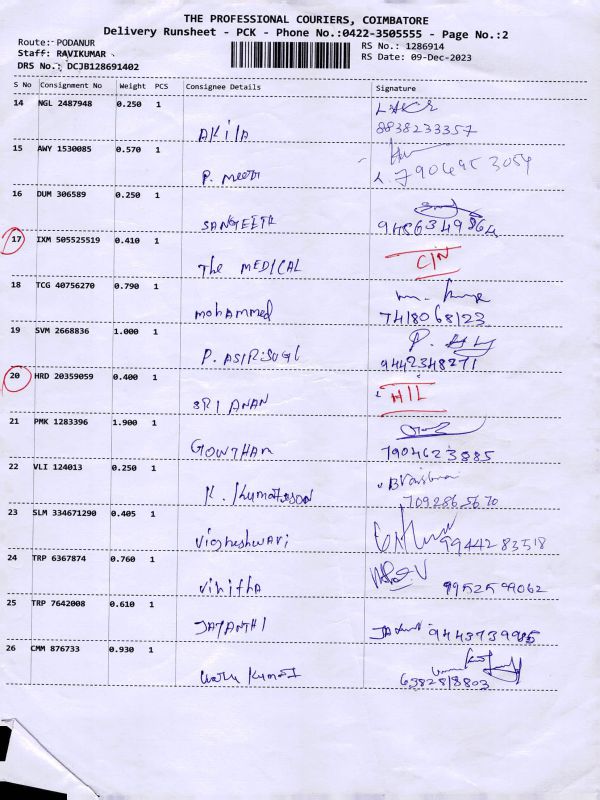 THE PROFESSIONAL COURIERS, COIMBATORE
Delivery Runsheet - PCK - Phone No.:0422-3505555 - Page No.:2
Route:- PODANUR
Staff: RAVIKUMAR
DRS No.: DCJB128691402
RS No.: 1286914
RS Date: 09-Dec-2023
S No Consignment No Weight PCS Consignee Details Signature
14 NGL 2487948 0.250 1
AKilA 8838233357
15 AWY 1530085 0.570 1
P.
16 DUM 306589 0.250 1
SANGEETH 9486349864
17 IXM 505525519 0.410 1
The MEDICAL C/N
18 TCG 40756270 0.790 1
mohAmmed 7418068123
19 SVM 2668836 1.000 1
P. 9442348271
20 HRD 20359059 0.400 1
SRI ANAN NIL
21 PMK 1283396 1.900 1
GOWTHAM 7904623885
22 VLI 124013 0.250 1
K. 7092865670
23 SLM 334671290 0.405 1
vigneshwari 9944283518
24 TRP 6367874 0.760 1
vinitha 9952599062
25 TRP 7642008 0.610 1
JAYANTHI 9443739985
26 CMM 876733 0.930 1
kumar 6382818803